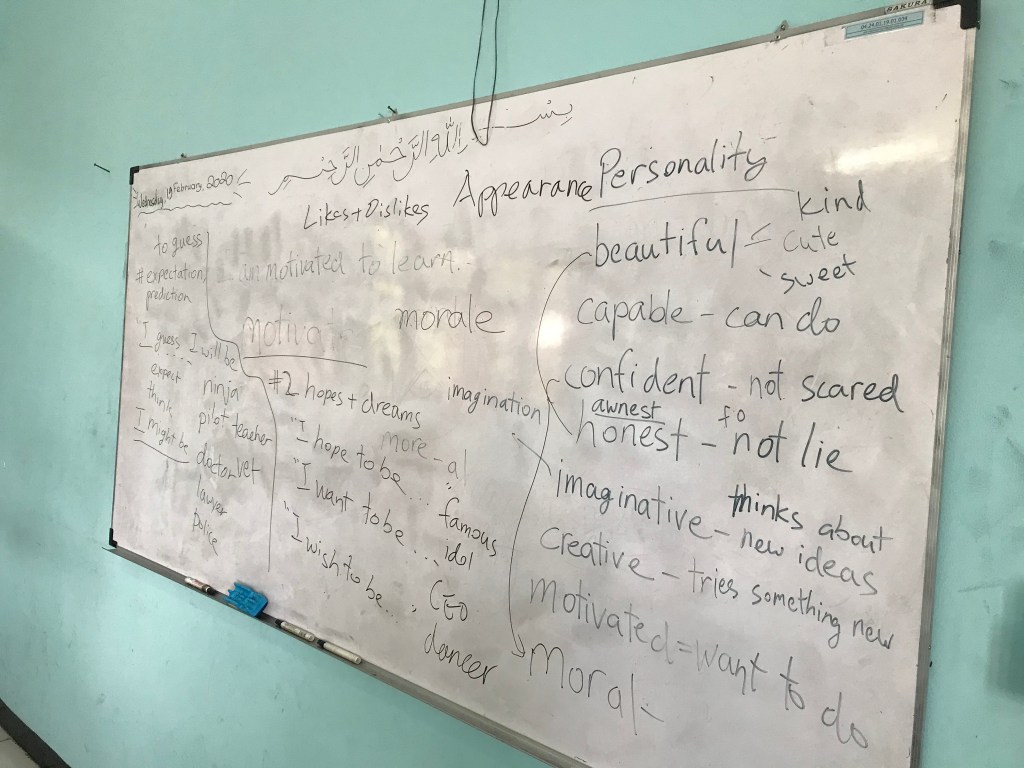 SAKURA
04.24.01.19.03.034
بِسْــــمِ اللّٰهِ الرَّحْمٰنِ الرَّحِيْمِ
Wednesday, 19 February, 2020
Likes + Dislikes
Appearance
Personality
to guess
# expectation
prediction
"I guess I will be
expect
think
I might be
ninja
pilot teacher
doctor vet
lawyer
police
am motivated to learn..
motivat
morale
#2 hopes + dreams
imagination
more - al
"I hope to be...
"I want to be...
"I wish to be...
famous
idol
CEO
dancer
kind
beautiful
cute
sweet
capable - can do
confident - not scared
awnest
fo
honest - not lie
imaginative - thinks about
new ideas
creative - tries something new
motivated = want to do
Moral -